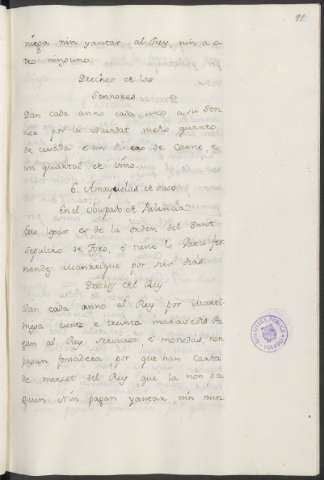 niega nin yantar al Rey, nin a o
tro ninguno.
Derechos de los
Sennores
Dan cada anno cada uno a su Sen
nor por la
de cevada e un de Carne, e
un de vino.
6. Amayuelas de suso
En el Obispado de Palencia
Este logar es de la orden del Sant
Sepulcro de Toro, e tiene lo Garci fer
nandez manrrique por sus dias.
Derechos del Rey
Dan cada anno al Rey por marti
niega ciento e treinta maravedis. Pa
gan al Rey servicios, e monedas, non
pagan fonsadera por que han Carta
de merced del Rey que la non pa
guen. Nin pagan yantar, nin nun